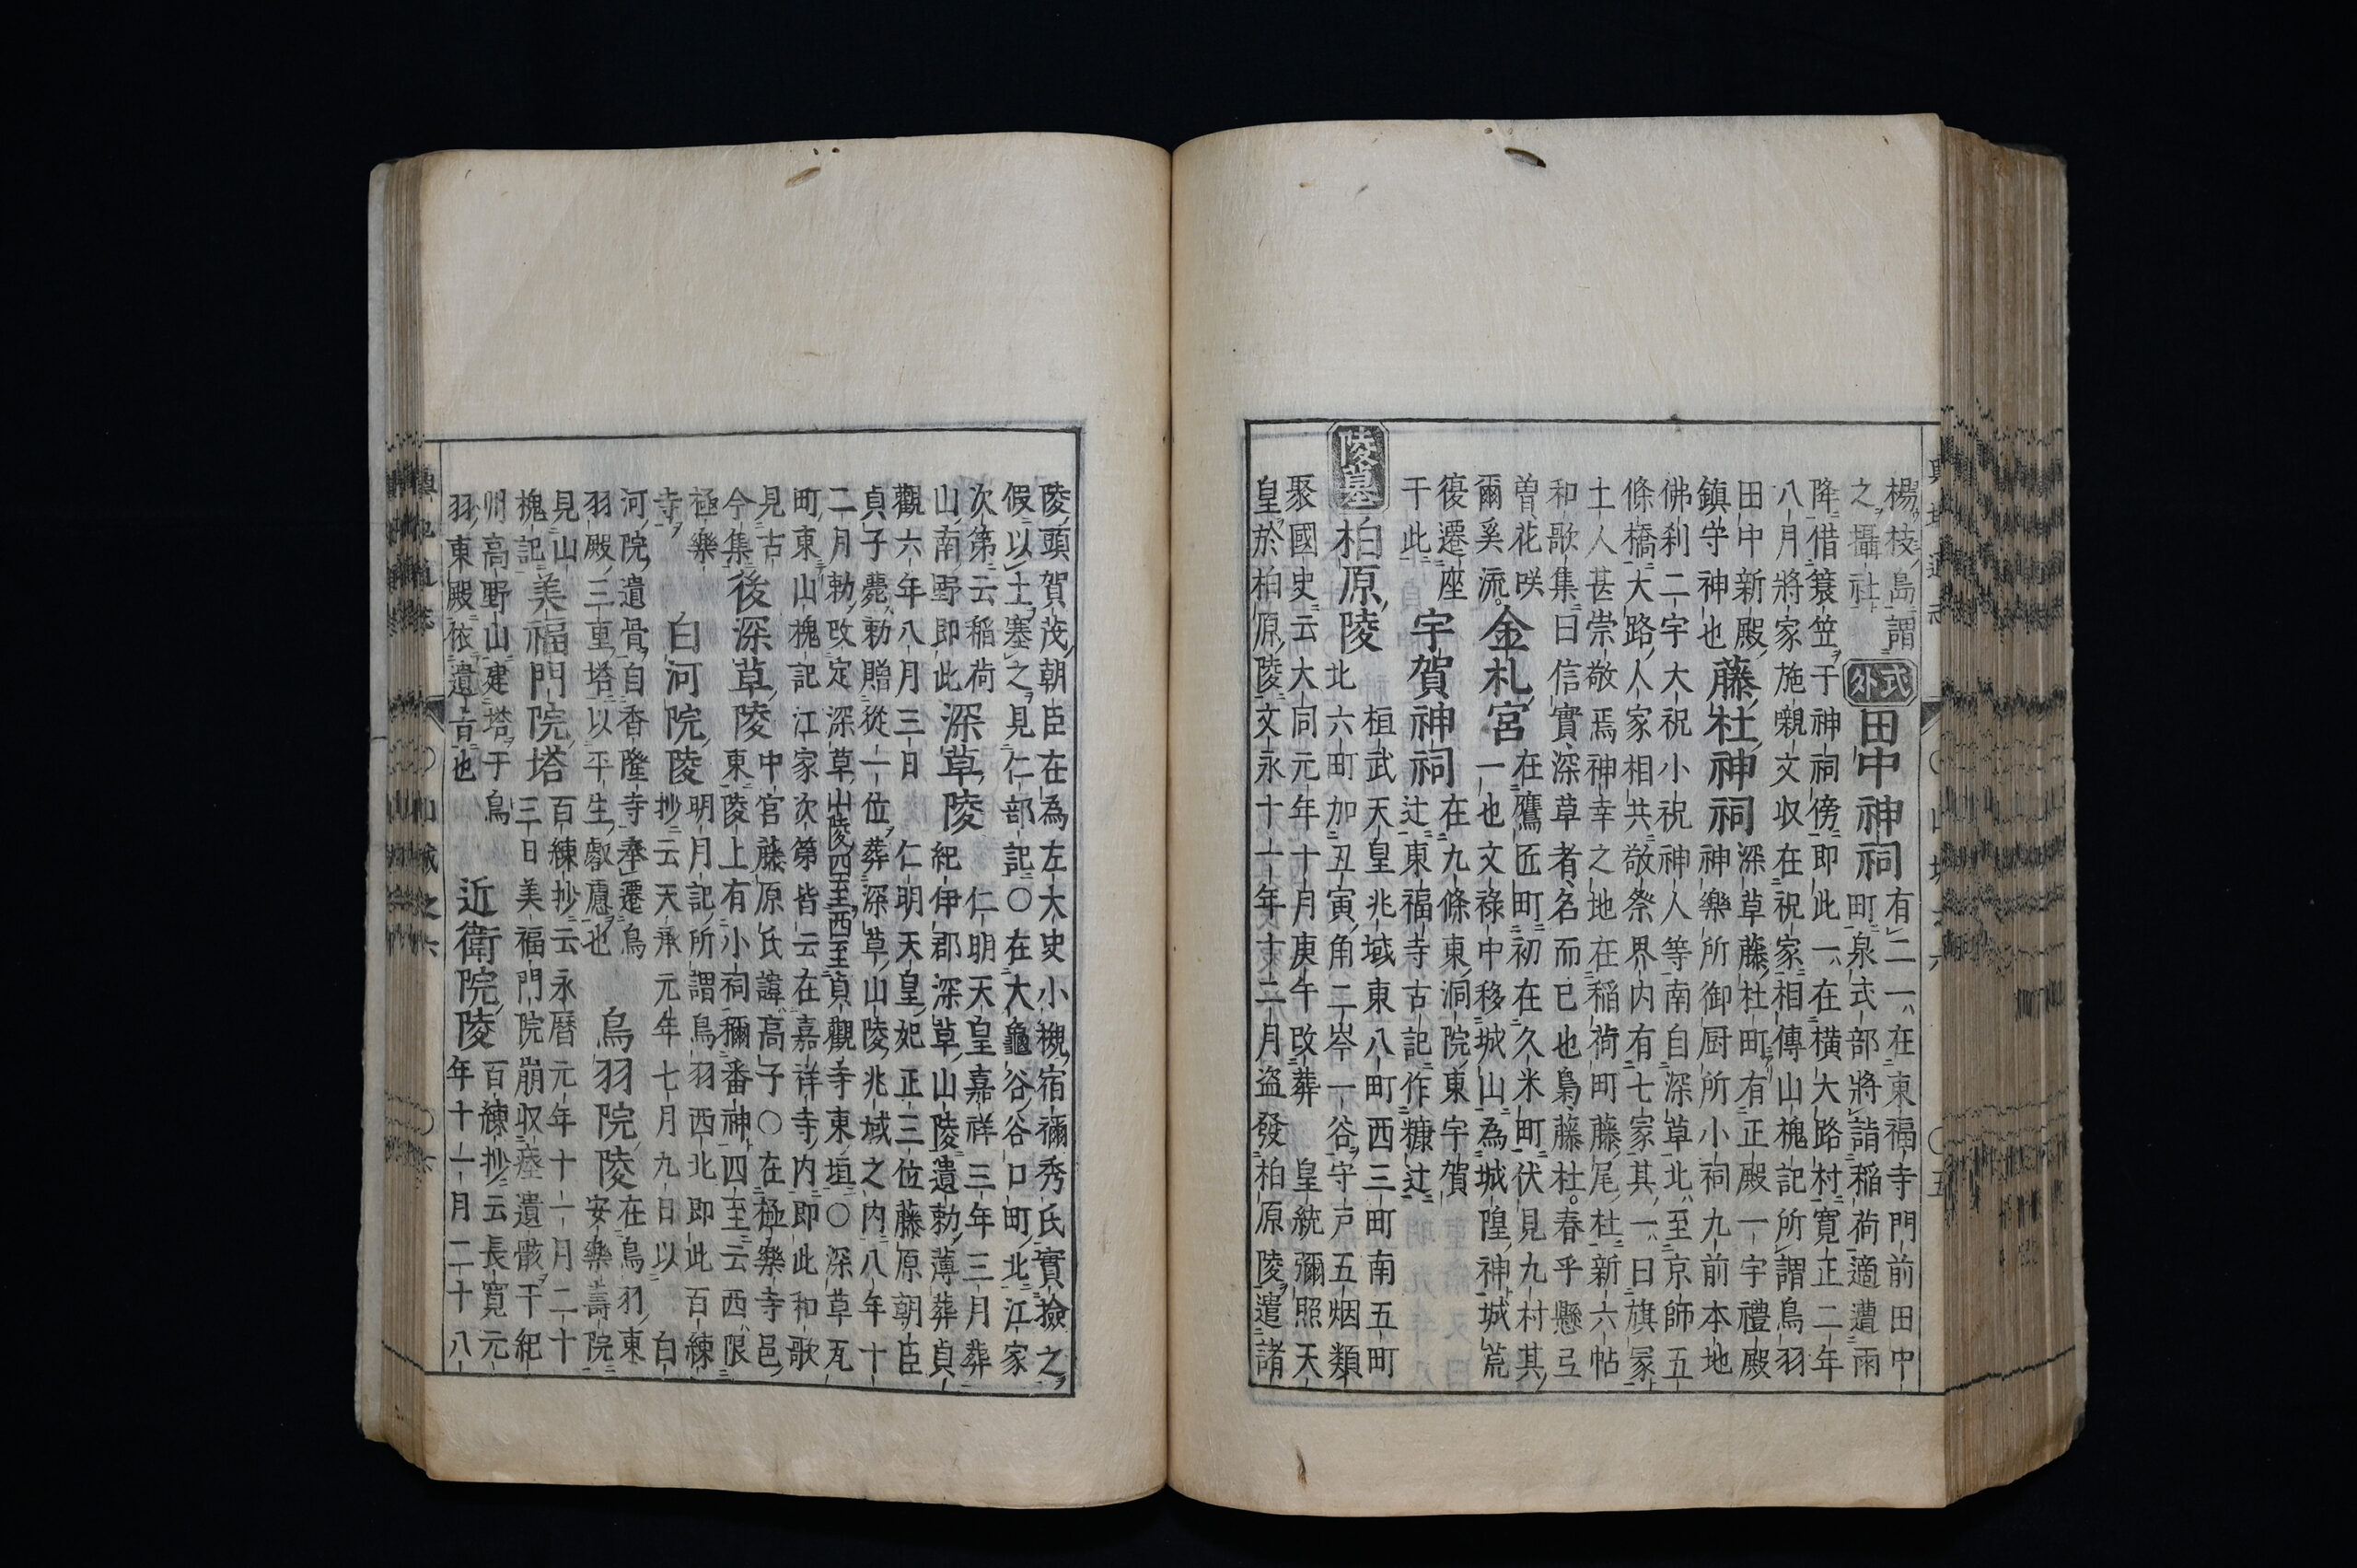 楊枝島謂
之攝社
式外
田中神祠
有二一在東福寺門前田中
町泉式部將詣稻荷適遭雨
降借簑笠于神祠傍即此一在橫大路村寬正二年
八月將家施嚫文収在祝家相傳山槐記所謂鳥羽
田中新殿
藤杜神祠
深草藤杜町有正殿一宇禮殿
鎮守神也
神樂所御厨所小祠九前本地
佛刹二宇大祝小祝神人等南自深草北至京師五
條橋大路人家相共敬祭界内有七家其一曰旗冢
土人甚崇敬焉神幸之地在稻荷町藤尾杜新六帖
和歌集曰信實深草者名而已也梟藤杜春乎懸弖
曽花咲
爾奚流
金札宮
在鷹匠町初在久米町伏見九村其
一也文祿中移城山為城隍神城荒
復遷座
于此
宇賀神祠
在九條東洞院東宇賀
辻東福寺古記作糠辻
陵墓
柏原陵
桓武天皇兆域東八町西三町南五町
北六町加丑寅角二岑一谷守戸五烟類
聚國史云大同元年十月庚午改葬 皇統彌照天
皇於柏原陵文永十一年十二月盜發柏原陵遣諸
陵頭賀茂朝臣在為左大史小槻宿禰秀氏實撿之
假以土塞之見仁部記○在大龜谷谷口町北江家
次第云稻荷
山南野即此
深草陵
仁明天皇嘉祥三年三月葬
紀伊郡深草山陵遺勅薄葬貞
觀六年八月三日 仁明天皇妃正三位藤原朝臣
貞子薨勅贈從一位葬深草山陵兆域之内八年十
二月勅改定深草山陵四至西至貞觀寺東垣○深草瓦
町東山槐記江家次第皆云在嘉祥寺内即此和歌
見古
今集
後深草陵
中宮藤原氏諱高子○在極樂寺邑
東陵上有小祠稱番神四至云西限
極樂
寺
白河院陵
明月記所謂鳥羽西北即此百練
抄云天承元年七月九日以 白
河院遺骨自香隆寺奉遷鳥
羽殿三重塔以平生叡慮也
鳥羽院陵
在鳥羽東
安樂壽院
見山
槐記
美福門院塔
百練抄云永曆元年十一月二十
三日美福門院崩収瘞遺骸于紀
州高野山建塔于鳥
羽東殿依遺言也
近衛院陵
百練抄云長寬元
年十一月二十八